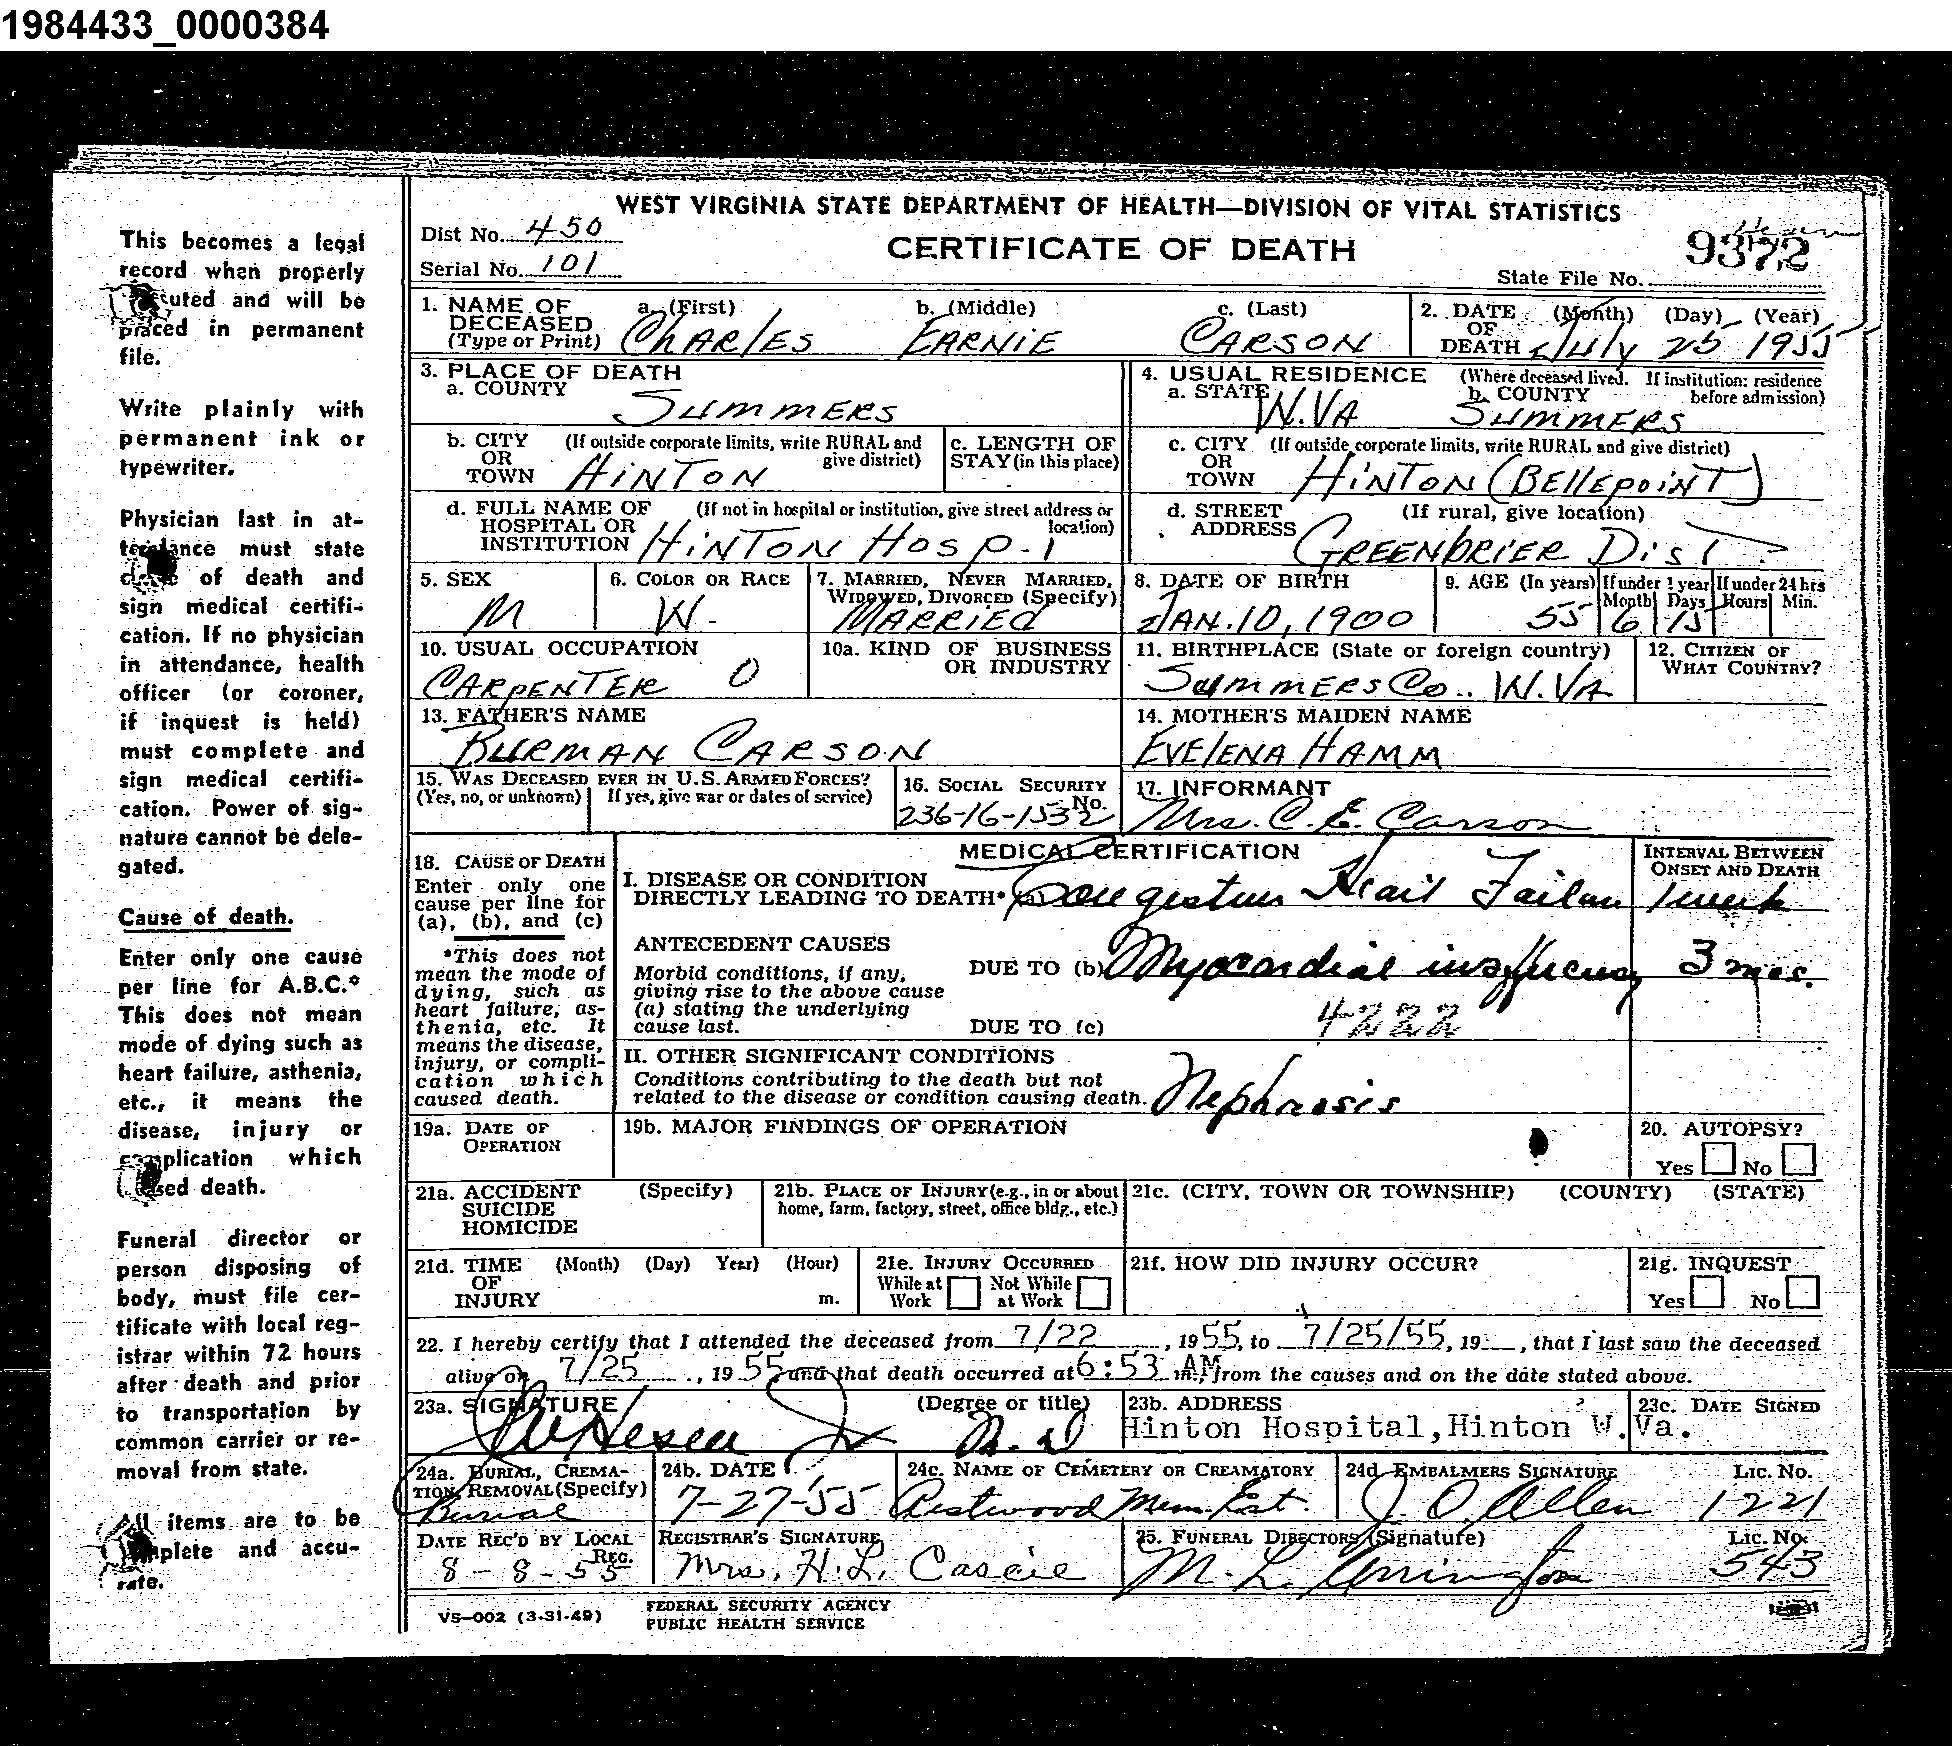 1984433_0000384
This becomes a legal
record when properly
uted and will be
placed in permanent
file.
Write plainly with
permanent ink or
typewriter.
Physician last in at-
tendance must state
of death and
sign medical certifi-
cation. If no physician
in attendance, health
officer (or coroner,
if inquest is held)
must complete and
sign medical certifi-
cation. Power of sig-
nature cannot be dele-
gated.
Cause of death.
Enter only one cause
per line for A.B.C.*
This does not mean
mode of dying such as
heart failure, asthenia,
etc., it means the
disease, injury or
complication which
sed death.
Funeral director or
person disposing of
body, must file cer-
tificate with local reg-
istrar within 72 hours
after death and prior
to transportation by
common carrier or re-
moval from state.
All items are to be
mplete and accu-
rate.
WEST VIRGINIA STATE DEPARTMENT OF HEALTH—DIVISION OF VITAL STATISTICS
Dist No. 450
CERTIFICATE OF DEATH
9372
Serial No. 101
State File No.
1. NAME OF DECEASED (Type or Print) a. (First) b. (Middle) c. (Last)
CHARLES EARNIE CARSON
2. DATE OF DEATH (Month) (Day) (Year)
July 25 1955
3. PLACE OF DEATH
a. COUNTY SUMMERS
4. USUAL RESIDENCE (Where deceased lived. If institution: residence before admission)
a. STATE W.VA b. COUNTY SUMMERS
b. CITY OR TOWN (If outside corporate limits, write RURAL and give district) HINTON
c. LENGTH OF STAY (in this place)
c. CITY OR TOWN (If outside corporate limits, write RURAL and give district) HINTON (BELLEPOINT)
d. FULL NAME OF HOSPITAL OR INSTITUTION (If not in hospital or institution, give street address or location) HINTON HOSP.
d. STREET ADDRESS (If rural, give location) GREENBRIER DIST
5. SEX M
6. COLOR OR RACE W.
7. MARRIED, NEVER MARRIED, WIDOWED, DIVORCED (Specify) MARRIED
8. DATE OF BIRTH JAN. 10, 1900
9. AGE (In years) 55 If under 1 year Month 6 Days 15 If under 24 hrs Hours Min.
10. USUAL OCCUPATION CARPENTER 0
10a. KIND OF BUSINESS OR INDUSTRY
11. BIRTHPLACE (State or foreign country) SUMMERS CO. W.VA
12. CITIZEN OF WHAT COUNTRY?
13. FATHER'S NAME BURMAN CARSON
14. MOTHER'S MAIDEN NAME EVELENA HAMM
15. WAS DECEASED EVER IN U.S. ARMED FORCES? (Yes, no, or unknown) If yes, give war or dates of service)
16. SOCIAL SECURITY No. 236-16-1532
17. INFORMANT Mrs. C. E. Carson
18. CAUSE OF DEATH
Enter only one
cause per line for
(a), (b), and (c)
*This does not
mean the mode of
dying, such as
heart failure, as-
thenia, etc. It
means the disease,
injury, or compli-
cation which
caused death.
MEDICAL CERTIFICATION
INTERVAL BETWEEN ONSET AND DEATH
I. DISEASE OR CONDITION
DIRECTLY LEADING TO DEATH* (a) Congestive Heart Failure 1 week
ANTECEDENT CAUSES
Morbid conditions, if any,
giving rise to the above cause
(a) stating the underlying
cause last.
DUE TO (b) Myocardial insufficiency 3 mos.
DUE TO (c) 4222
II. OTHER SIGNIFICANT CONDITIONS
Conditions contributing to the death but not
related to the disease or condition causing death. Nephrosis
19a. DATE OF OPERATION
19b. MAJOR FINDINGS OF OPERATION
20. AUTOPSY?
Yes No
21a. ACCIDENT SUICIDE HOMICIDE (Specify)
21b. PLACE OF INJURY (e.g., in or about home, farm, factory, street, office bldg., etc.)
21c. (CITY, TOWN OR TOWNSHIP) (COUNTY) (STATE)
21d. TIME OF INJURY (Month) (Day) Year) (Hour) m.
21e. INJURY OCCURRED While at Work Not While at Work
21f. HOW DID INJURY OCCUR?
21g. INQUEST Yes No
22. I hereby certify that I attended the deceased from 7/22, 1955, to 7/25/55, 19 , that I last saw the deceased
alive on 7/25, 1955, and that death occurred at 6:53 AM m., from the causes and on the date stated above.
23a. SIGNATURE (Degree or title) M.D
23b. ADDRESS Hinton Hospital, Hinton W.Va.
23c. DATE SIGNED
24a. BURIAL, CREMATION, REMOVAL (Specify) Burial
24b. DATE 7-27-55
24c. NAME OF CEMETERY OR CREAMATORY Restwood Mem. Est.
24d. EMBALMERS SIGNATURE J. O. Allen Lic. No. 1221
DATE REC'D BY LOCAL REG. 8-8-55
REGISTRAR'S SIGNATURE Mrs. H. L. Cascie
25. FUNERAL DIRECTORS (Signature) M. L. Arrington Lic. No. 543
VS-002 (3-31-49)
FEDERAL SECURITY AGENCY
PUBLIC HEALTH SERVICE